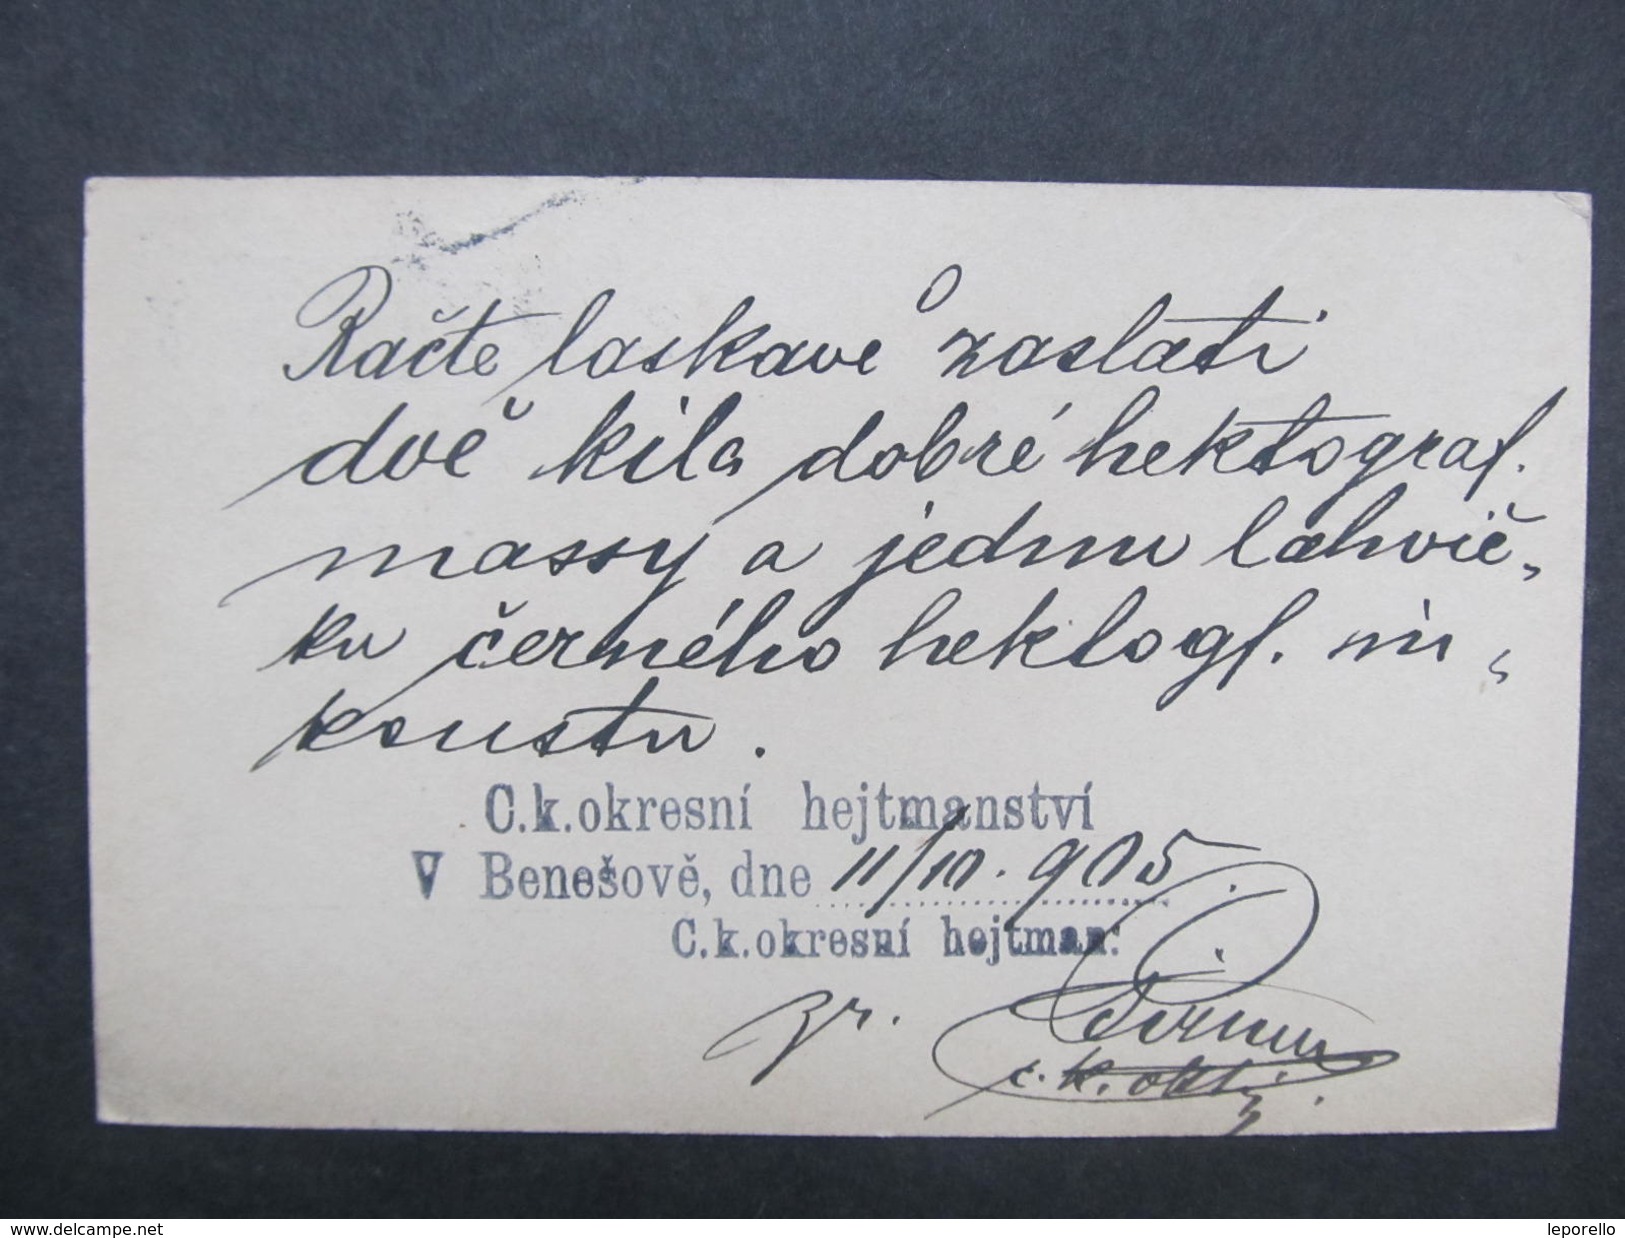 Račte laskavě zaslati
dvě kila dobré hektograf.
massy a jednu lahvič-
ku černého hektogf. in-
koustu.
C.k.okresní hejtmanství
V Benešově, dne 11/10. 905.
C.k.okresní hejtman:
c. k.
delcampe.net
leporello